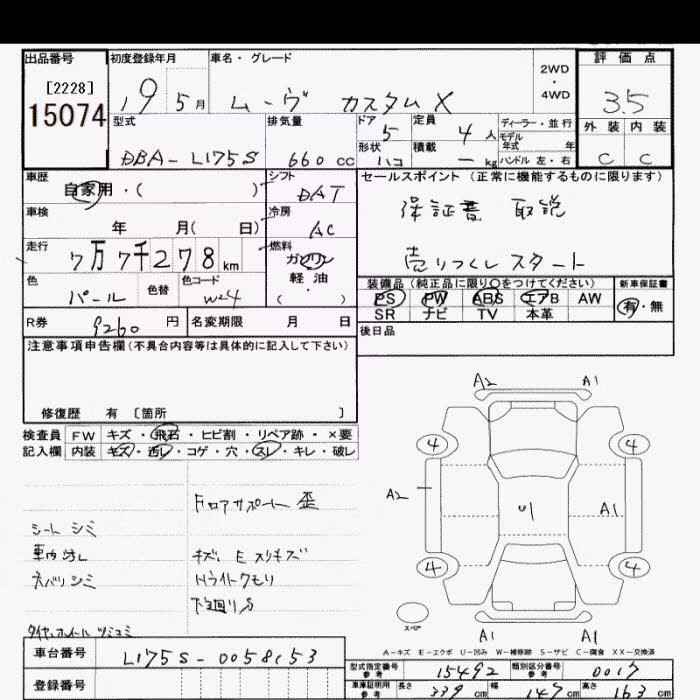 出品番号 初度登録年月 車名・グレード 2WD・4WD 評価点
[2228] 15074 19 5月 ムーヴ カスタムX 3.5
型式 排気量 ドア 5 定員 4人 ディーラー・並行 外装 内装
DBA-L175S 660cc 形状 ハコ 積載 ー kg モデル年式 年 ハンドル 左・右 C C
車歴 自家用・( ) シフト DAT セールスポイント (正常に機能するものに限ります)
車検 年 月( 日) 冷房 AC 保証書 取説
走行 7万7千278km 燃料 ガソリン 軽油 ( ) 売りつくしスタート
色 パール 色替 色コード W24 装備品(純正品に限り○をつけてください) 新車保証書
PS PW ABS エアB AW 有・無
SR ナビ TV 本革
R券 9260円 名変期限 月 日 後日品
注意事項申告欄(不具合内容等は具体的に記入して下さい)
修復歴 有 [箇所 ]
検査員 FW キズ・飛石・ヒビ割・リペア跡・×要
記入欄 内装 キズ・汚レ・コゲ・穴・スレ・キレ・破レ
A2 A1
4 4
A2 U1 A1
4 4
スペア A1 A1
フロアサポート歪
シートシミ
車内汚レ キズ、Eスリキズ
ネバリシミ Hライトクモリ
下廻りS
タイヤ、ホイールツミコミ
A-キズ E-エクボ U-凹み W-補修跡 S-サビ C-腐食 XX-交換済
車台番号 L175S-0058153
型式指定番号 参考 15492 類別区分番号 参考 0017
登録番号 車庫証明用 参考 長さ 339cm 幅 147cm 高さ 163cm